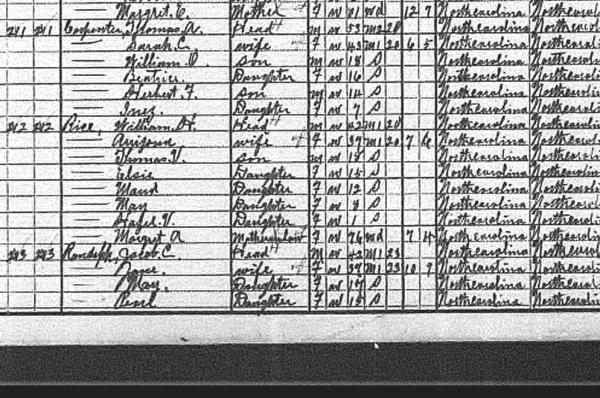 Margret. E. Mother F w 71 wd 12 7 Northcarolina Northcarolina
241 241 Carpenter, Thomas A. Head m w 53 m1 20 Northcarolina Northcarolina
Sarah. C. wife F w 43 m1 20 6 5 Northcarolina Northcarolina
William. son m w 18 S Northcarolina Northcarolina
Daughter F w 16 S Northcarolina Northcarolina
Herbert. F. son m w 14 S Northcarolina Northcarolina
Inez. Daughter F w 7 S Northcarolina Northcarolina
242 242 Rice, William. H. Head m w 42 m1 20 Northcarolina Northcarolina
wife F w 39 m1 20 7 6 Northcarolina Northcarolina
Thomas. V. son m w S Northcarolina Northcarolina
Elsie Daughter F w 15 S Northcarolina Northcarolina
Maud Daughter F w 12 S Northcarolina Northcarolina
May Daughter F w 8 S Northcarolina Northcarolina
Hazel. V. Daughter F w 1 S Northcarolina Northcarolina
Margret A F w 76 wd 7 4 Northcarolina Northcarolina
243 243 Jacob. C. Head m w 42 m1 23 Northcarolina Northcarolina
wife F w 39 m1 23 10 9 Northcarolina Northcarolina
May. Daughter F w 17 S Northcarolina Northcarolina
Pearl Daughter F w 15 S Northcarolina Northcarolina